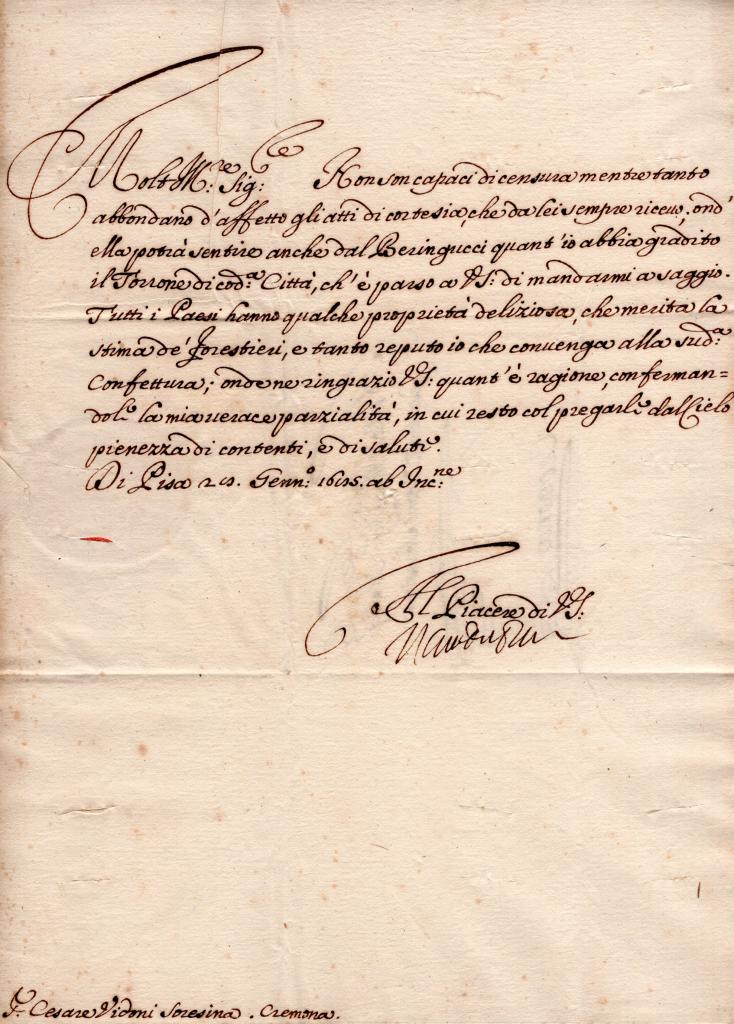 Molto Ill:re Sig:re Non son capaci di censura mentre tanto
abbondano d'affetto gli atti di cortesia, che da lei sempre ricevo, ond'
ella potrà sentire anche dal Beringucci quant' io abbia gradito
il Torrone di cod:a Città, ch' è parso a VS: di mandarmi a saggio.
Tutti i Paesi hanno qualche proprietà deliziosa, che merita la
stima de' forestieri, e tanto reputo io che convenga alla sud:a
Confettura; onde ne ringrazio VS: quant' è ragione, conferman=
dole la mia verace parzialità, in cui resto col pregarle dal Cielo
pienezza di contenti, e di salute.
Di Pisa Genn:o ab Inc:ne
Al Piacere di VS:
S.r Cesare Vidoni Soresina. Cremona.